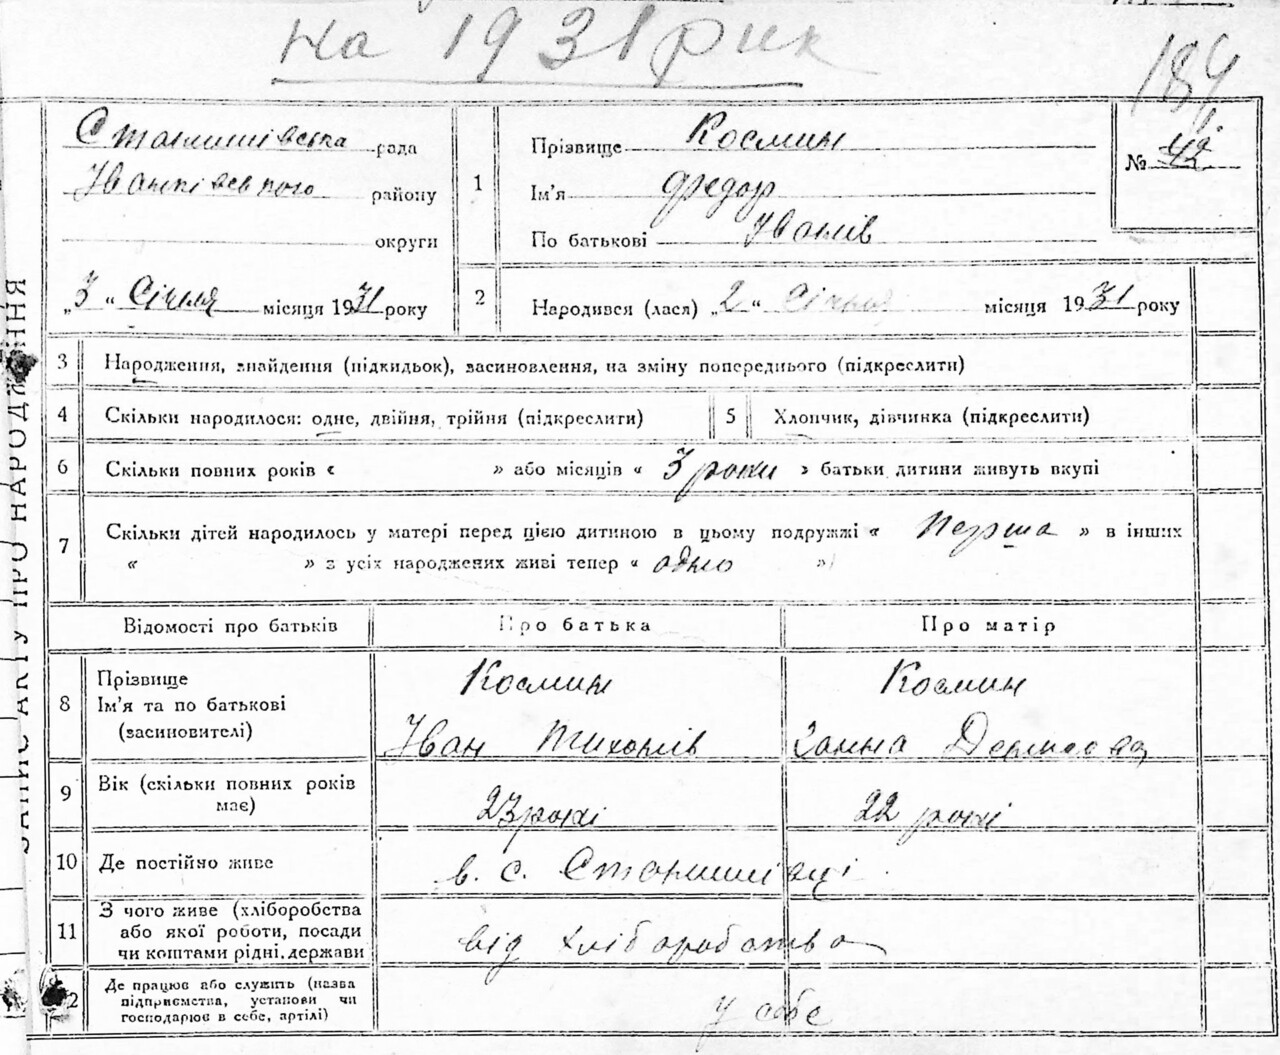 на 1931 рик
184
Станишівська рада
Іванківського району
округи
„3“ Січня місяця 1931 року
1
Прізвище Космин
Ім'я Федор
По батькові Іванів
№ 42
2
Народився (лася) „2“ Січня місяця 1931 року
ЗАПИС АКТУ ПРО НАРОДЖЕННЯ
3 Народження, знайдення (підкидьок), засиновлення, на зміну попереднього (підкреслити)
4 Скільки народилося: одне, двійня, трійня (підкреслити)
5 Хлопчик, дівчинка (підкреслити)
6 Скільки повних років « » або місяців « 3 роки » батьки дитини живуть вкупі
7 Скільки дітей народилось у матері перед цією дитиною в цьому подружжі « Перша » в інших
« » з усіх народжених живі тепер « одно »
Відомості про батьків Про батька Про матір
8 Прізвище
Ім'я та по батькові
(засиновителі)
Космин Космин
Іван Тихонів Ганна
9 Вік (скільки повних років
має)
23 рокі 22 рокі
10 Де постійно живе в. с. Станишівці
11 З чого живе (хліборобства
або якої роботи, посади
чи коштами рідні, держави
від хліборобства
12 Де працює або служить (назва
підприємства, установи чи
господарює в себе, артілі)
у себе